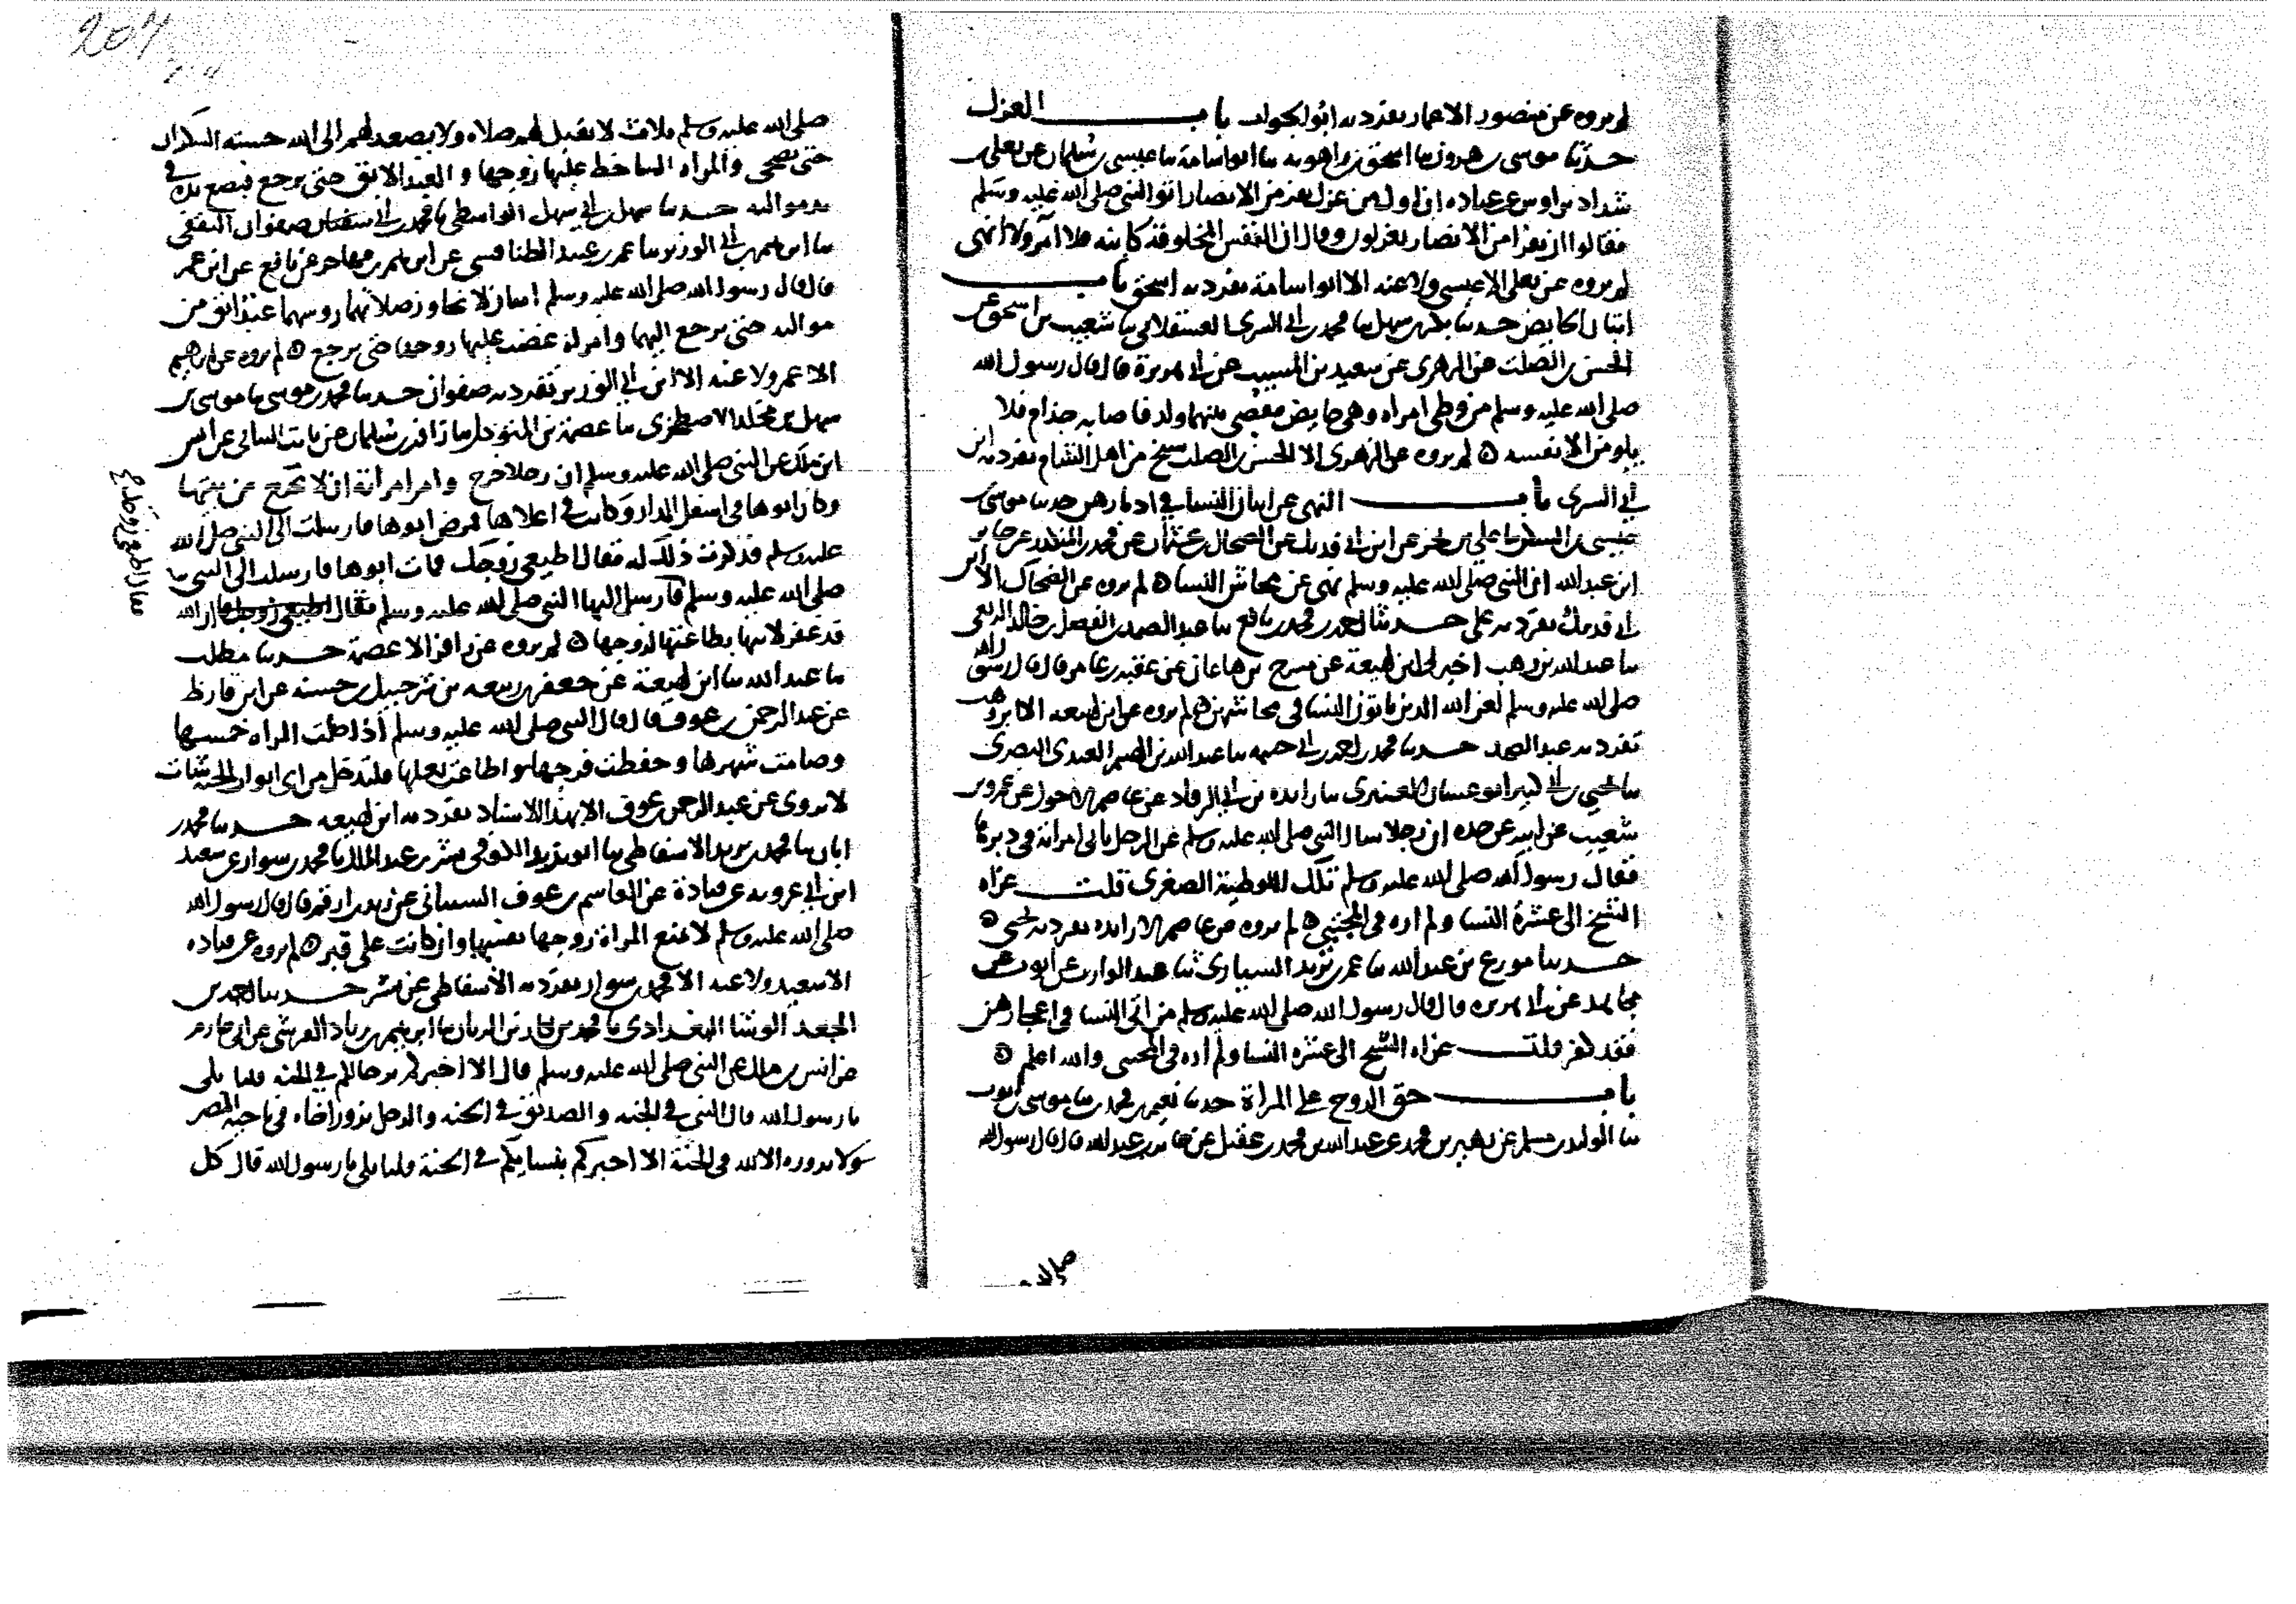 لم يروه عن منصور الا عمار تفرد به ابو الجواب باب العزل
حدثنا موسى بن هرون ثنا اسحق بن راهويه ثنا ابو اسامة ثنا عيسى بن سليمان عن يعلى بن
شداد بن اوس عن عباده ان اول من عزل نفر من الانصار اتوا النبي صلى الله عليه وسلم
فقالوا ان نفرا من الانصار يعزلون وقال ان النفس المخلوقة كاينه فلا آمر ولا انهى
لم يروه عن يعلى الا عيسى ولا عنه الا ابو اسامة تفرد به اسحق باب
اتيان الحايض حدثنا بكر بن سهل ثنا محمد بن ابي السرى العسقلاني ثنا شعيب بن اسحق عن
الحسن بن الصلت عن الزهرى عن سعيد بن المسيب عن ابي هريرة قال قال رسول الله
صلى الله عليه وسلم من وطى امراه وهي حايض فقضى بينهما ولد فاصابه جذام فلا
يلومن الا نفسه ه لم يروه عن الزهرى الا الحسن بن الصلت شيخ من اهل الشام تفرد به ابن
ابي السرى باب النهى عن اتيان النسا في ادبارهن حدثنا موسى بن
عيسى بن المنذر ثنا على بن بحر عن ابن ابي فديك عن الضحاك بن عثمان عن محمد بن المنكدر عن جابر
ابن عبدالله ان النبي صلى الله عليه وسلم نهى عن محاش النسا ه لم يروه عن الضحاك الا ابن
ابي فديك تفرد به على حدثنا احمد بن محمد بن نافع ثنا عبد الصمد بن الفضل بن خالد الربعي
ثنا عبد الله بن وهب اخبرني ابن لهيعة عن مشرح بن هاعان عن عقبه بن عامر قال قال رسول الله
صلى الله عليه وسلم لعن الله الذين ياتون النسا في محاشهن ه لم يروه عن ابن لهيعه الا ابن وهب
تفرد به عبد الصمد حدثنا محمد بن احمد بن ابي خيثمه ثنا عبد الله بن الهيثم العبدى البصرى
ثنا يحيى بن ابي كثير ابو غسان العنبرى ثنا زايده بن ابي الرقاد عن عاصم الاحول عن عمرو بن
شعيب عن ابيه عن جده ان رجلا سال النبي صلى الله عليه وسلم عن الرجل ياتى امراته في دبرها
فقال رسول الله صلى الله عليه وسلم تلك اللوطية الصغرى قلت عزاه
الشيخ الى عشرة النسا ولم اره في المجتبى ه لم يروه عن عاصم الا زايده تفرد به يحيى ه
حدثنا مورع بن عبد الله ثنا عمر بن يزيد السيارى ثنا عبد الوارث عن ايوب عن
مجاهد عن ابي هريره قال قال رسول الله صلى الله عليه وسلم من اتى النسا في اعجازهن
فقد كفر قلت عزاه الشيخ الى عشره النسا ولم اره في المجتبى والله اعلم ه
باب حق الزوج على المراة حدثنا نعيم بن محمد ثنا موسى بن ايوب
ثنا الوليد بن مسلم عن زهير بن محمد عن عبد الله بن محمد بن عقيل عن جابر بن عبد الله قال قال رسول الله
صلى الله
207
صلى الله عليه وسلم ثلاثة لا تقبل لهم صلاه ولا يصعد لهم الى الله حسنه السكران
حتى يصحى والمراه الساخط عليها زوجها والعبد الابق حتى يرجع فيضع يده في
يد مواليه حدثنا سهل بن ابي سهل الواسطى ثنا محمد بن ابي صفوان الثقفى
ثنا ابراهيم بن ابي الوزير ثنا عمر بن عبيد الطنافسى عن ابراهيم بن مهاجر عن نافع عن ابن عمر
قال قال رسول الله صلى الله عليه وسلم اثنان لا تجاوز صلاتهما روسهما عبد ابق من
مواليه حتى يرجع اليهم وامراة غضب عليها زوجها حتى يرجع ه لم يروه عن ابراهيم
الا عمر ولا عنه الا ابن ابي الوزير تفرد به صفوان حدثنا محمد بن موسى ثنا موسى بن
سهل بن مخلد الاصطخرى ثنا عصمة بن المتوكل ثنا زافر بن سليمان عن ثابت البناني عن انس
ابن ملك عن النبي صلى الله عليه وسلم ان رجلا خرج وامر امراته ان لا تخرج من بيتها
وكان ابوها في اسفل الدار وكانت في اعلاها فمرض ابوها فارسلت الى النبي صلى الله
عليه وسلم فذكرت ذلك له فقال اطيعي زوجك فمات ابوها فارسلت الى النبي
صلى الله عليه وسلم فارسل اليها النبي صلى الله عليه وسلم فقال ان الله
فقال اطيعي زوجك
قد غفر لابيها بطاعتها لزوجها ه لم يروه عن زافر الا عصمة حدثنا مطلب
ثنا عبد الله ثنا ابن لهيعة عن جعفر بن ربيعه بن شرحبيل بن حسنه عن ابن قارظ
عن عبد الرحمن بن عوف قال قال النبي صلى الله عليه وسلم اذا صلت المراه خمسها
وصامت شهرها وحفظت فرجها واطاعت بعلها فلتدخل من اى ابواب الجنة شات
لا يروى عن عبد الرحمن بن عوف الا بهذا الاسناد تفرد به ابن لهيعه حدثنا محمد بن
ابان ثنا محمد بن يزيد الاسفاطى ثنا ابو يزيد الكوفى بشر بن عبد الملك ثنا محمد بن سوار عن سعيد
ابن ابي عروبه عن قتادة عن القاسم بن عوف الشيبانى عن زيد بن ارقم قال قال رسول الله
صلى الله عليه وسلم لا تمنع المراة زوجها نفسها وان كانت على قتب ه لم يروه عن قتاده
الا سعيد ولا عنه الا محمد بن سوار تفرد به الاسفاطى عن بشر حدثنا احمد بن
الجعد الوشا البغدادى ثنا محمد بن بكار بن الريان ثنا ابراهيم بن زياد القرشى عن ابي حازم
عن انس بن ملك عن النبي صلى الله عليه وسلم قال الا اخبركم برجالكم في الجنه قلنا بلى
يا رسول الله قال النبي في الجنه والصديق في الجنه والرجل يزور اخاه في ناحية المصر
لا يزوره الا لله في الجنة الا اخبركم بنسايكم في الجنة قلنا بلى يا رسول الله قال كل